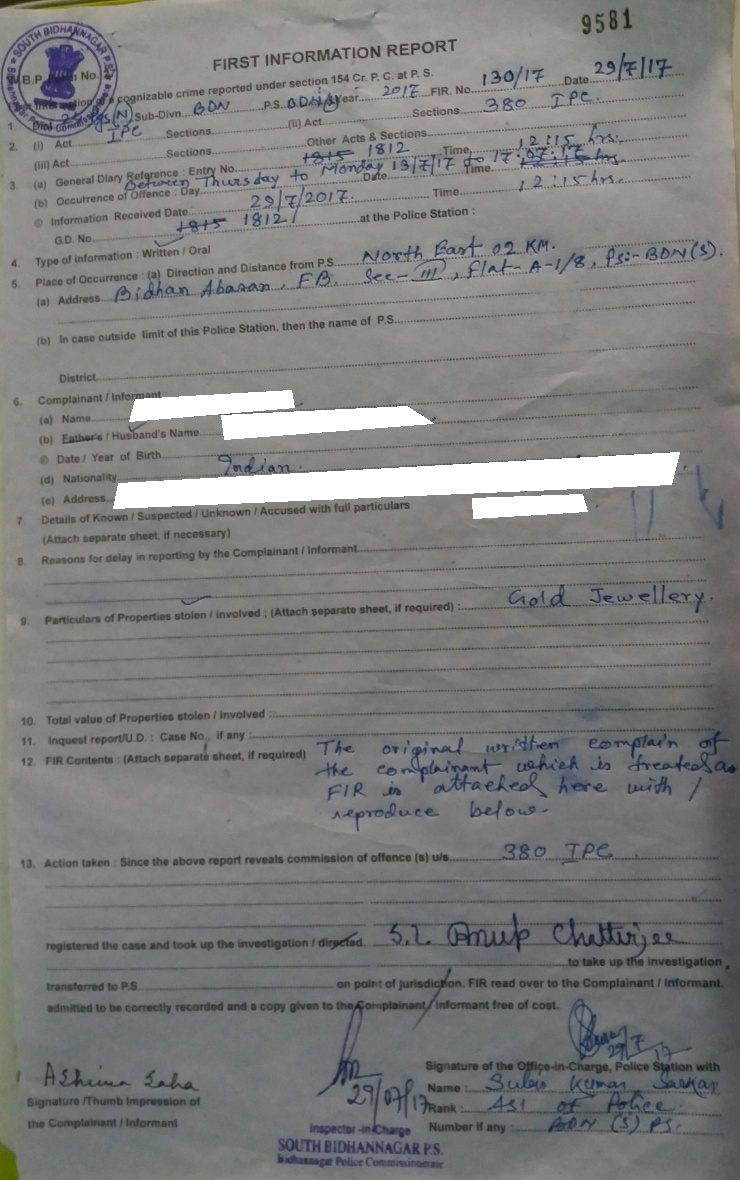 9581
SOUTH BIDHANNAGAR P.S.
FIRST INFORMATION REPORT
W.B.P. Form No.
cognizable crime reported under section 154 Cr. P. C. at P. S.
1. Sub-Divn BDN P.S. BDN(S) Year 2017 FIR. No. 130/17 Date 29/7/17
2. (i) Act IPC Sections (ii) Act Sections 380 IPC.
(iii) Act Sections Other Acts & Sections
3. (a) General Diary Reference : Entry No. 1815 1812 Time 12:15 hrs.
(b) Occutrence of Offence : Day Between Thursday to Monday Date 13/7/17 to 17:07:17 Time
© Information Received Date 29/7/2017. Time 12:15 hrs.
G.D. No. 1815 1812 at the Police Station :
4. Type of information : Written / Oral
5. Place of Occurrence : (a) Direction and Distance from P.S. North East 02 KM.
(a) Address Bidhan Abasan, FB, Sec-III, flat-A-1/8, Ps:-BDN(S).
(b) In case outside limit of this Police Station, then the name of P.S.
District
6. Complainant / Informant
(a) Name
(b) Father's / Husband's Name
© Date / Year of Birth
(d) Nationality Indian
(e) Address
7. Details of Known / Suspected / Unknown / Accused with full particulars
(Attach separate sheet, if necessary)
8. Reasons for delay in reporting by the Complainant / Informant
9. Particulars of Properties stolen / involved ; (Attach separate sheet, if required) : Gold Jewellery.
10. Total value of Properties stolen / involved :
11. Inquest report/U.D. : Case No., if any :
12. FIR Contents : (Attach separate sheet, if required) The original written complain of
the complainant which is treated as
FIR is attached here with /
reproduce below.
13. Action taken : Since the above report reveals commission of offence (s) u/s 380 IPC.
registered the case and took up the investigation / directed S.I. Anup Chatterjee
to take up the investigation,
transferred to P.S. on point of jurisdiction. FIR read over to the Complainant / Informant.
admitted to be correctly recorded and a copy given to the Complainant / Informant free of cost.
29/7/17
Signature of the Office-in-Charge, Police Station with
Ashima Saha 29/07/17 Name : Kumar Sarkar
Signature /Thumb Impression of Rank : ASI of Police.
the Complainant / Informant Number if any : BDN (S) PS.
Inspector-in-Charge
SOUTH BIDHANNAGAR P.S.
Bidhannagar Police Commissionerate